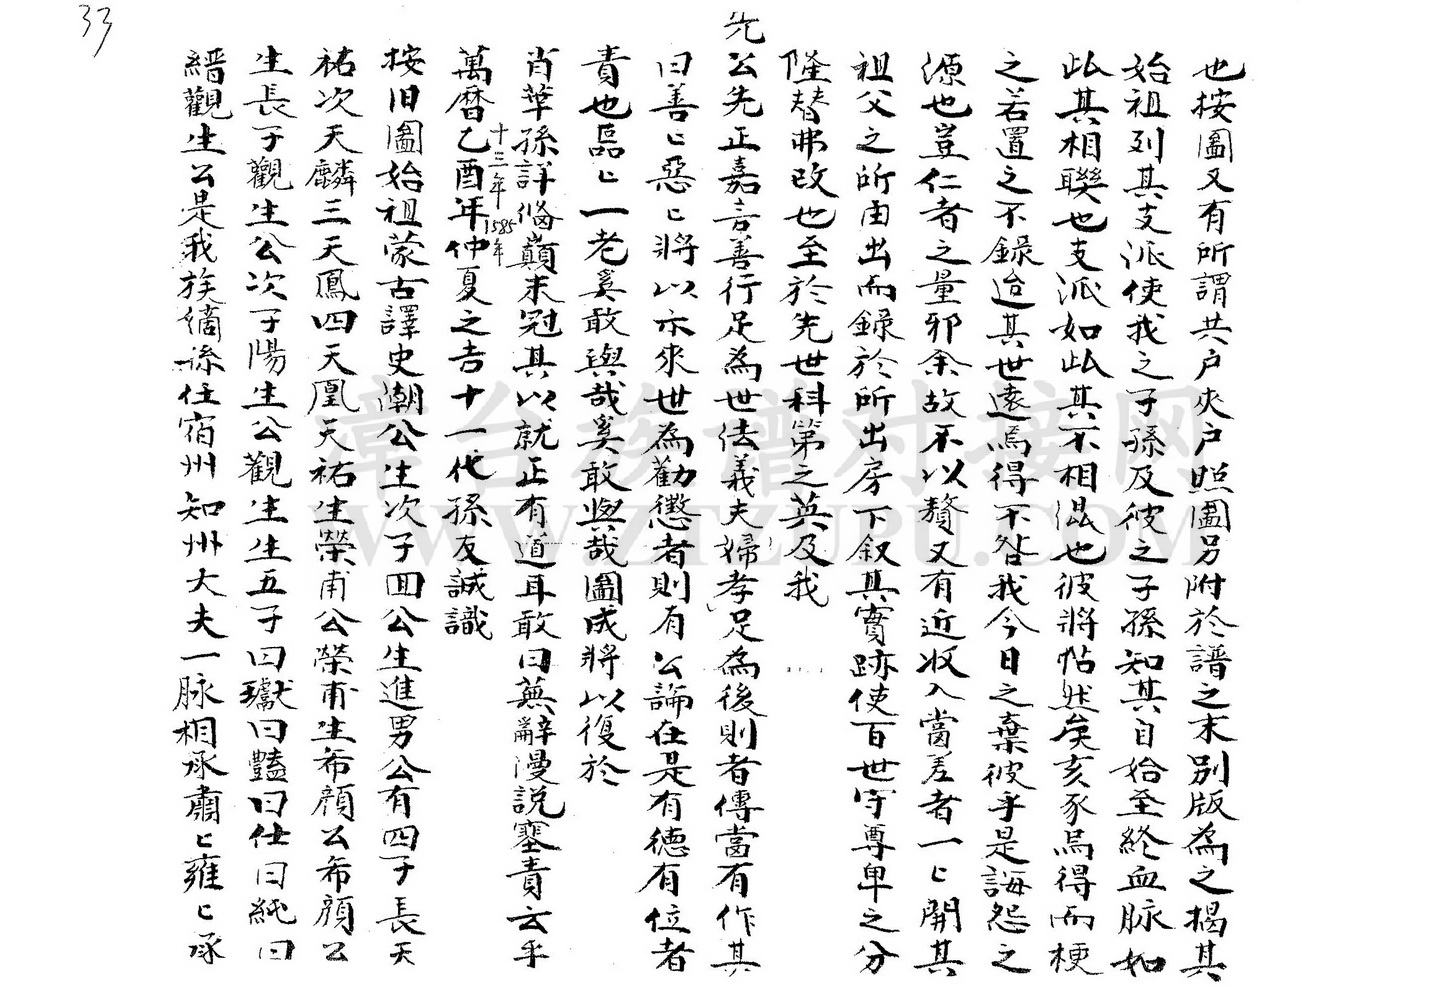 33
也按圖又有所謂共户夾户照圖另附於譜之末別版為之揭其
始祖列其支派使我之子孫及彼之子孫知其自始至終血脉如
此其相聯也支派如此其不相混也彼將帖然矣亥豕焉得而梗
之若置之不錄迨其世遠焉得不咎我今日之棄彼乎是誨怨之
源也豈仁者之量邪余故不以贅又有近收入當差者一匕開其
祖父之所由出而録於所出房下叙其實跡使百世守尊卑之分
隆替弗改也至於先世科第之英及我
先公先正嘉言善行足為世法義夫婦孝足為後則者傳當有作其
曰善匕惡匕將以示來世為勸懲者則有公論在是有德有位者
責也區匕一老奚敢與哉奚敢與哉圖成將以復於
肖華孫詳偹巔末冠其以就正有道耳敢曰蕪辭漫説塞責云乎
萬曆乙酉年仲夏之吉十一代孫友誠識
十三年 1585年
按旧圖始祖蒙古譯史潮公生次子回公生進男公有四子長天
祐次天麟三天鳳四天凰天祐生榮甫公榮甫生希顔公希顔公
生長子觀生公次子陽生公觀生生五子曰獻曰豔曰仕曰純曰
縉觀生公是我族嫡孫任宿州知州大夫一脉相承肅匕雍匕承
漳台族谱对接网
WWW.ZTZUPU.COM